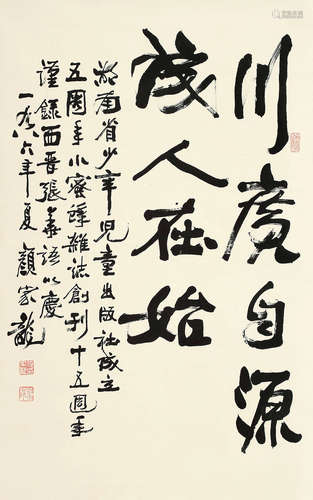 川广自源
成人在始
湖南省少年儿童出版社成立
五周年小蜜蜂杂志创刊十五周年
谨录西晋张华语以庆
一九八六年夏 颜家龙